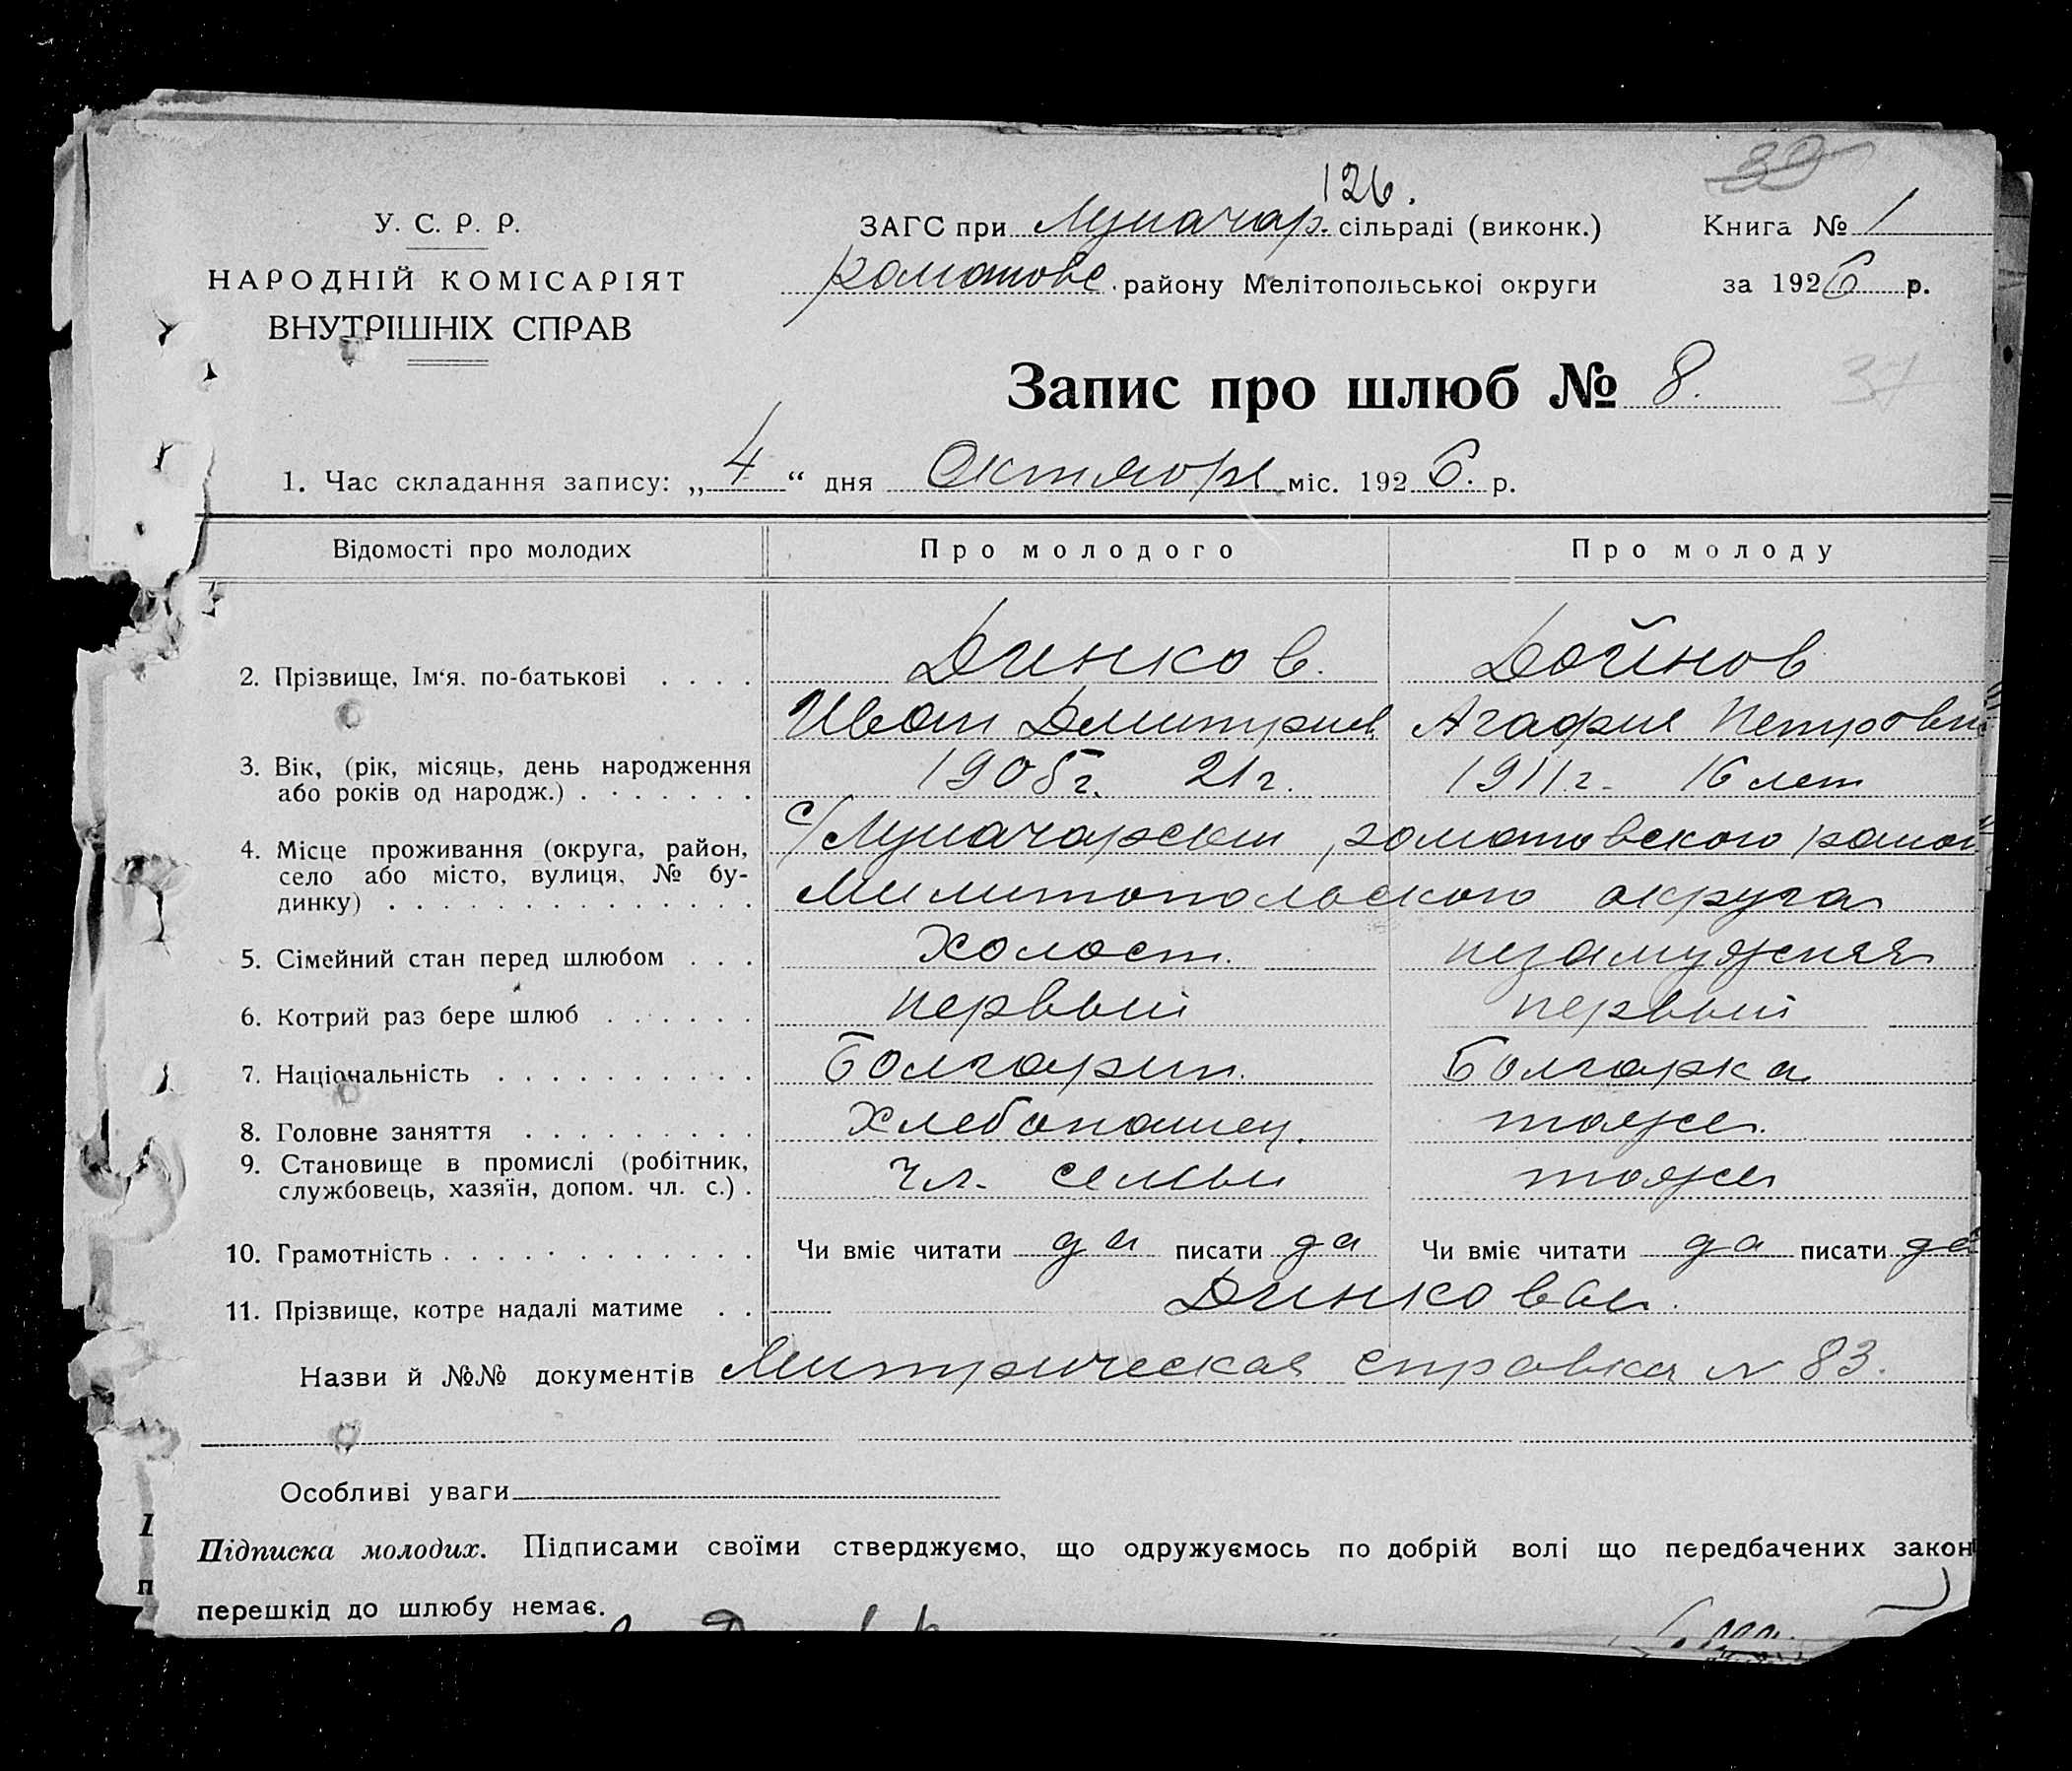 126.
39
У. С. Р. Р.
ЗАГС при Луначар. сільраді (виконк.)
Книга № 1
НАРОДНІЙ КОМІСАРІЯТ
ВНУТРІШНІХ СПРАВ
романове. району Мелітопольської округи
за 1926 р.
Запис про шлюб № 8.
37
1. Час складання запису: „4“ дня Октября міс. 1926. р.
Відомості про молодих
Про молодого
Про молоду
2. Прізвище, Ім‘я. по-батькові . . . .
Динков.
Дойнов
Иван Дмитриев
Агафия Петровн
3. Вік, (рік, місяць, день народження
або років од народж.) . . . . . . .
1905 г. 21 г.
1911 г. 16 лет
4. Місце проживання (округа, район,
село або місто, вулиця, № бу-
динку) . . . . . . . . . . . . . .
с/Луначарскии, романовского район
Милитопольского округа
5. Сімейний стан перед шлюбом . . .
Холост.
незамужняя
6. Котрий раз бере шлюб . . . . . .
первый
первый
7. Національність . . . . . . . . . .
Болгарин.
Болгарка
8. Головне заняття . . . . . . . . .
Хлебопашец.
тоже.
9. Становище в промислі (робітник,
службовець, хазяїн, допом. чл. с.) .
чл. семьи
тоже
10. Грамотність . . . . . . . . . . . .
Чи вміє читати да писати да
Чи вміє читати да писати да
11. Прізвище, котре надалі матиме . .
Динковы.
Назви й №№ документів Митрическая справка N 83.
Особливі уваги
Підписка молодих. Підписами своїми стверджуємо, що одружуємось по добрій волі що передбачених закон
перешкід до шлюбу немає.